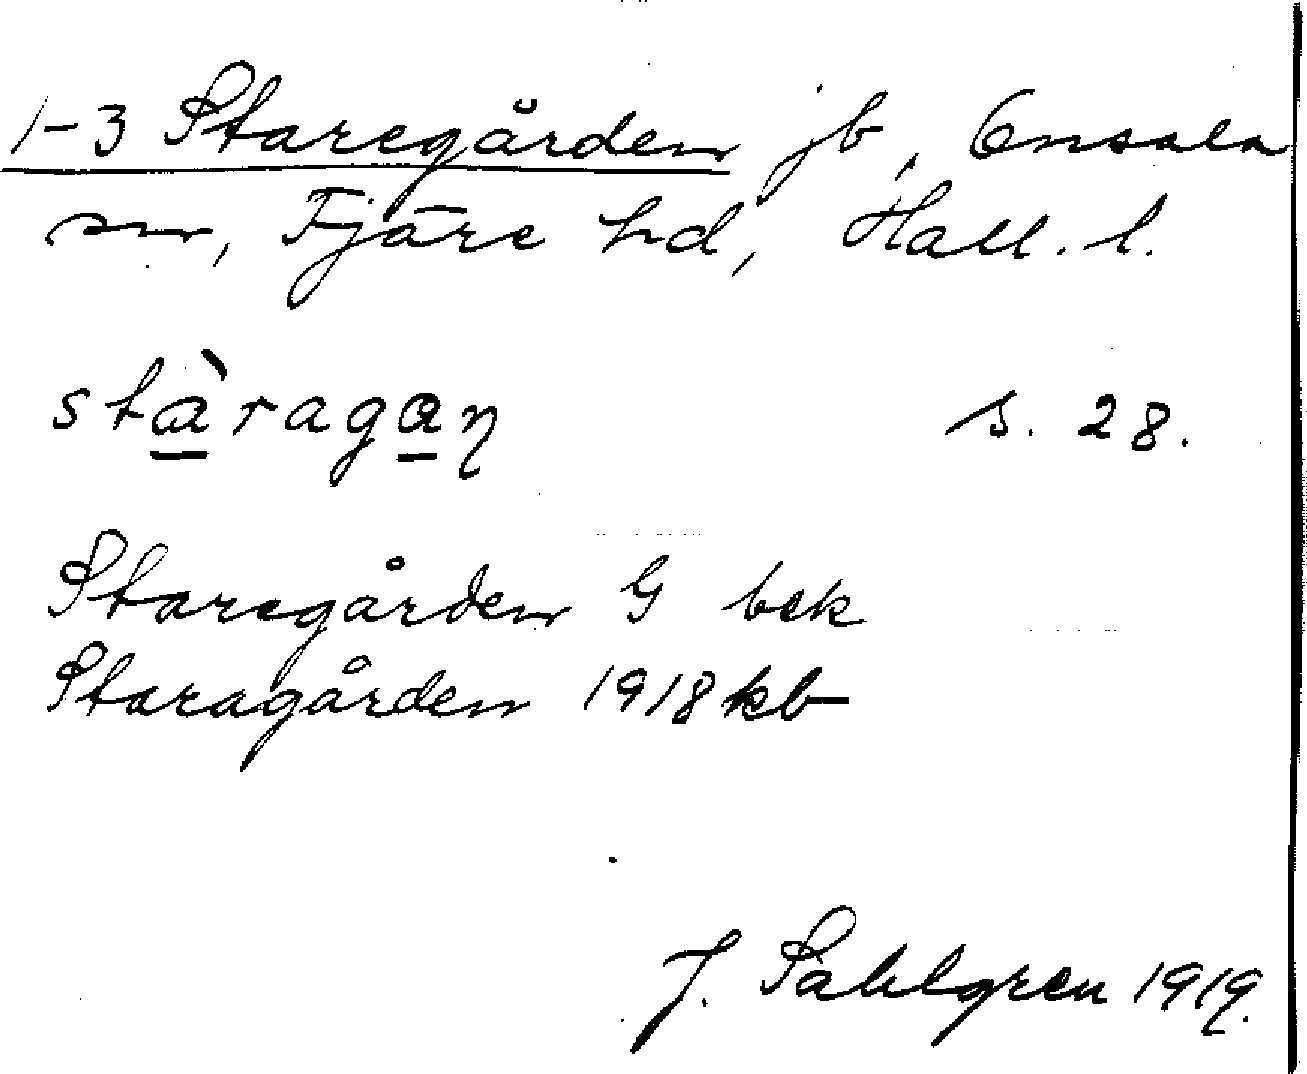 1-3 Staregården jb, Onsala
sn, Fjäre hd, Hall. l.
stàragan s. 28.
Staregården G bek
Staragården 1918 kb
J. Sahlgren 1919.